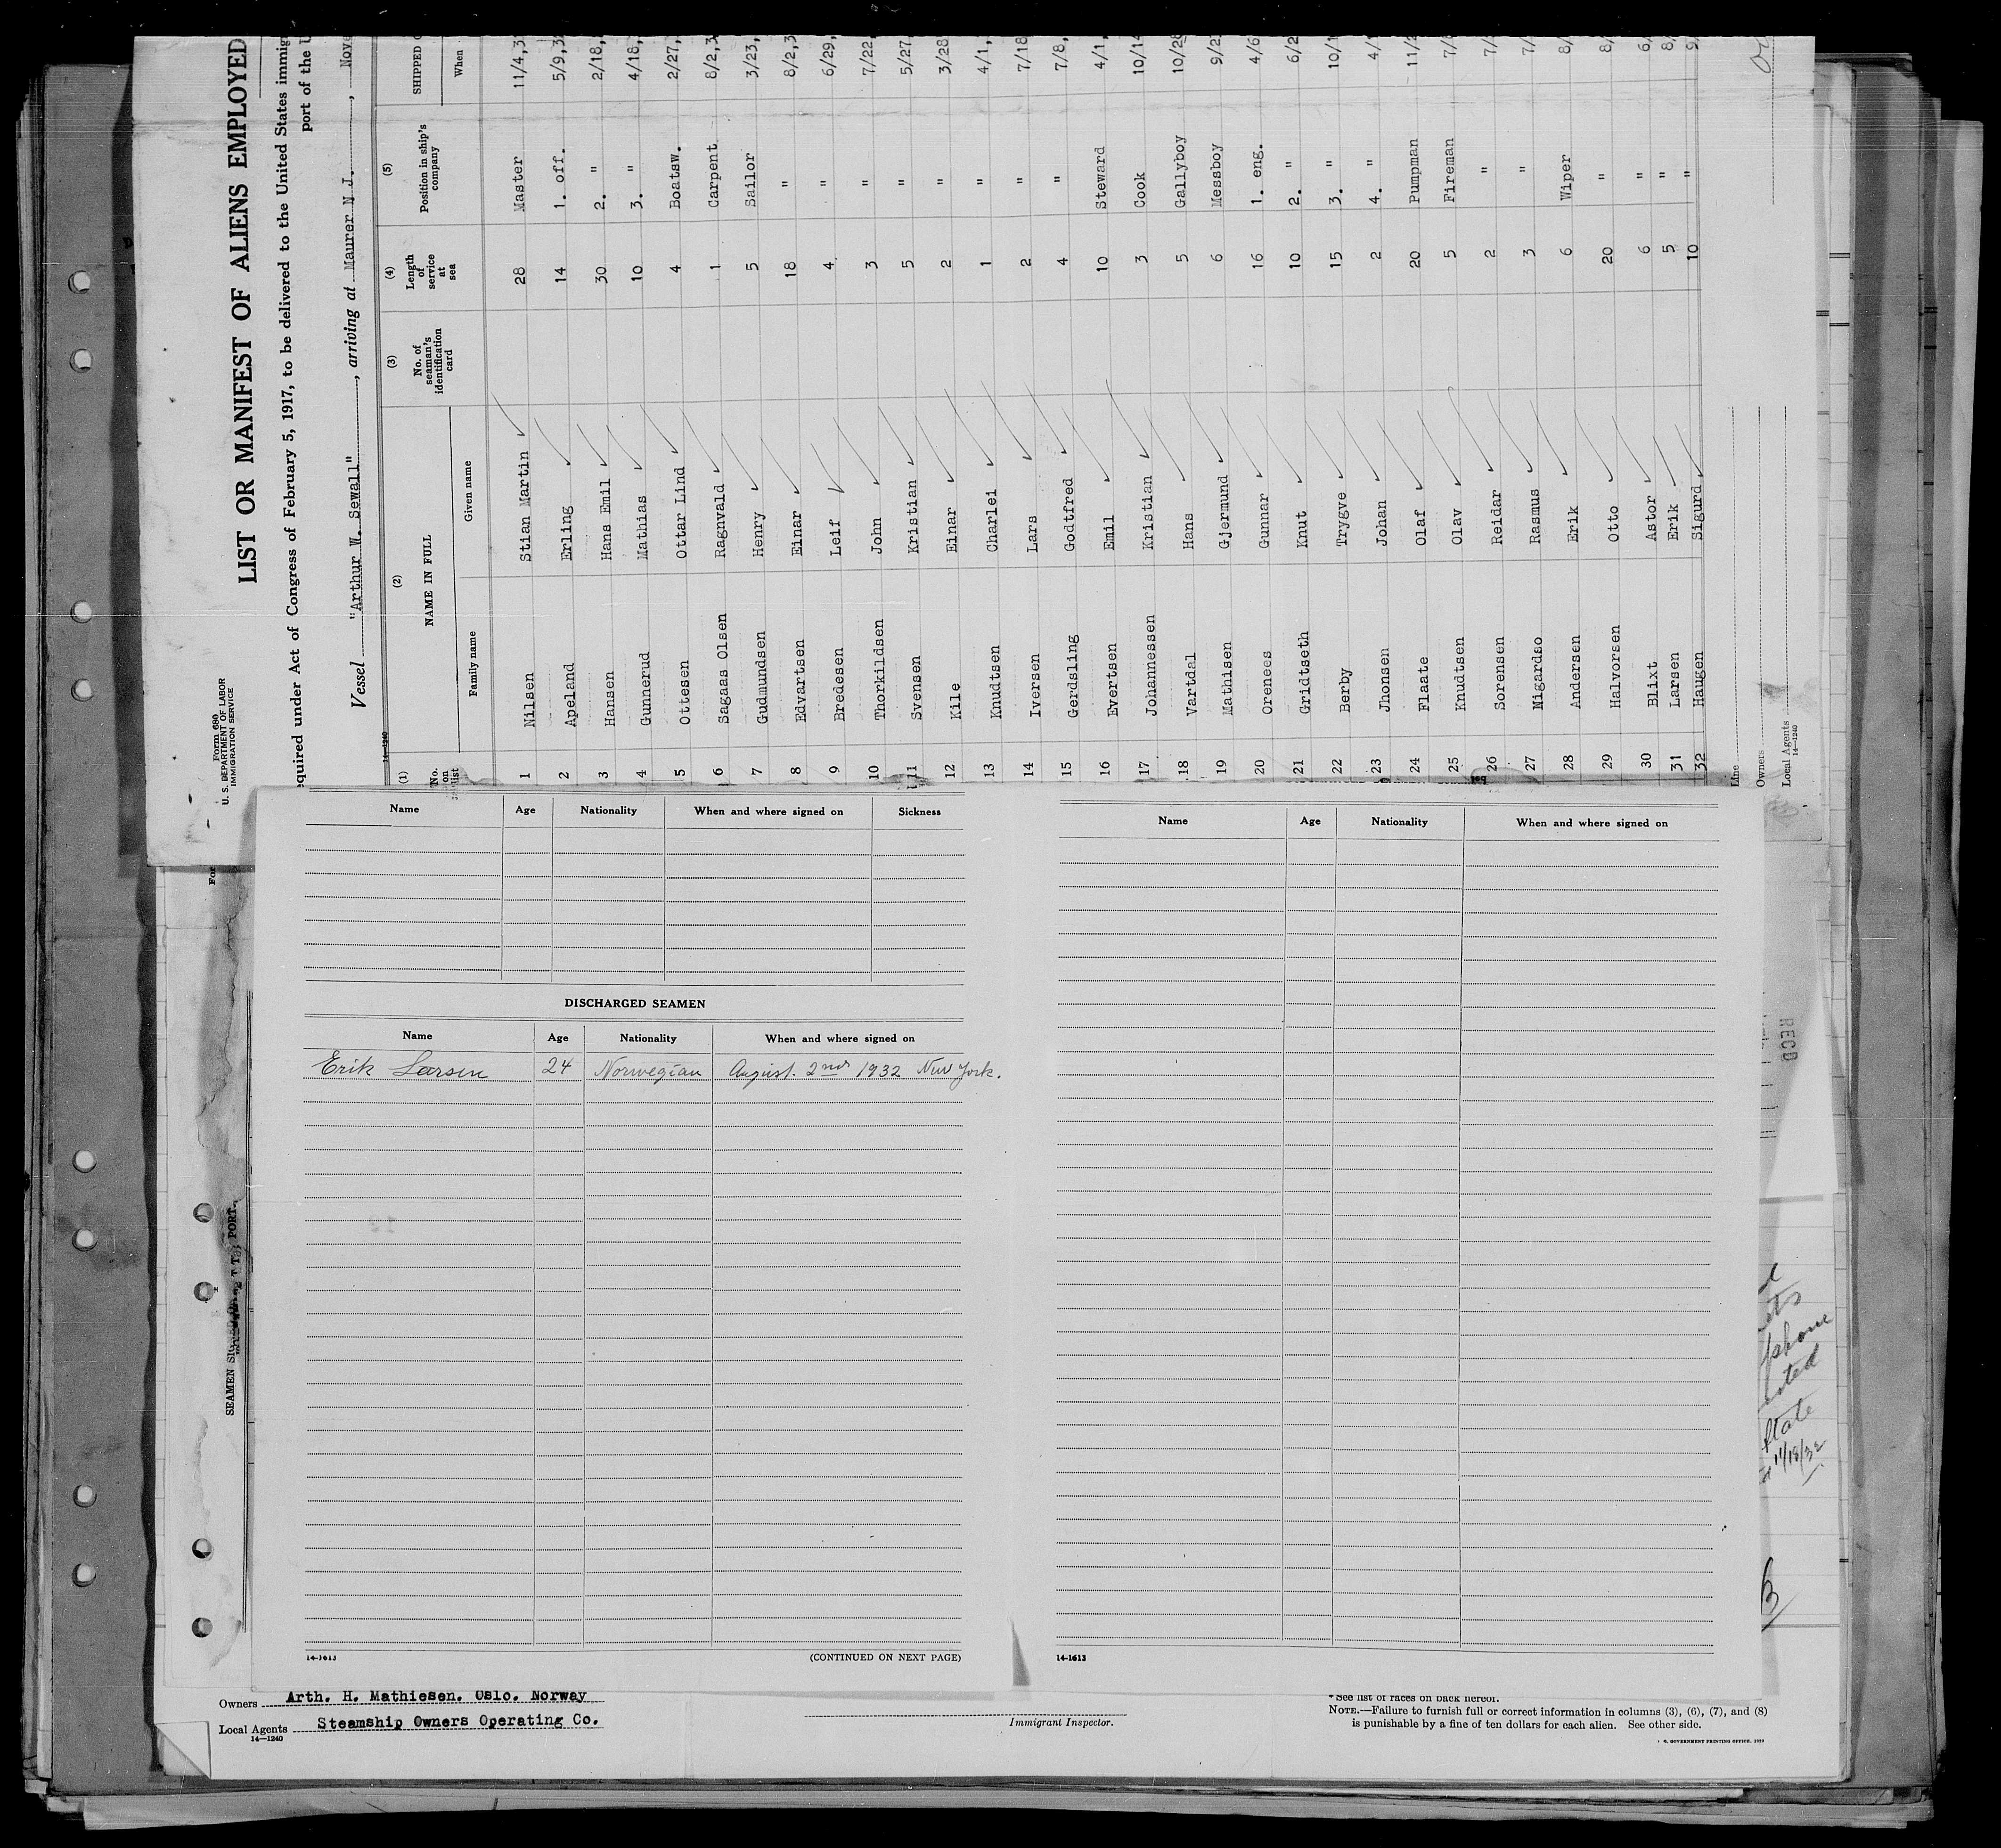 Form 680
U. S. DEPARTMENT OF LABOR
IMMIGRATION SERVICE
LIST OR MANIFEST OF ALIENS EMPLOYED
equired under Act of Congress of February 5, 1917, to be delivered to the United States immig
port of the U
Vessel "Arthur W. Sewall", arriving at Maurer N.J., Nove
14—1240
(1) (2) (3) (4) (5)
No. on list NAME IN FULL No. of seaman's identification card Length of service at sea Position in ship's company SHIPPED
Family name Given name When
1 Nilsen Stian Martin 28 Master 11/4,3
2 Apeland Erling 14 1. off. 5/9,3
3 Hansen Hans Emil 30 2. " 2/18,
4 Gunnerud Mathias 10 3. " 4/18,
5 Ottesen Ottar Lind 4 Boatsw. 2/27,
6 Sagaas Olsen Ragnvald 1 Carpent. 8/2,3
7 Gudmundsen Henry 5 Sailor 3/23,
8 Edvartsen Einar 18 " 8/2,3
9 Bredesen Leif 4 " 6/29,
10 Thorkildsen John 3 " 7/22,
11 Svensen Kristian 5 " 5/27
12 Kile Einar 2 " 3/28
13 Knudtsen Charlei 1 " 4/1,
14 Iversen Lars 2 " 7/18
15 Gerdsling Godtfred 4 " 7/8,
16 Evertsen Emil 10 Steward 4/1,
17 Johannessen Kristian 3 Cook 10/14
18 Vartdal Hans 5 Gallyboy 10/28
19 Mathisen Gjermund 6 Messboy 9/2
20 Orenees Gunnar 16 1. eng. 4/6
21 Gridtseth Knut 10 2. " 6/2
22 Berby Trygve 15 3. " 10/1
23 Jhonsen Johan 2 4. " 4/1
24 Flaate Olaf 20 Pumpman 11/2
25 Knudtsen Olav 5 Fireman 7/
26 Sorensen Reidar 2 " 7/
27 Nigardso Rasmus 3 " 7/
28 Andersen Erik 6 Wiper 8/
29 Halvorsen Otto 20 " 8/
30 Blixt Astor 6 " 6/
31 Larsen Erik 5 " 8/
32 Haugen Sigurd 10 " 9/
Line
Owners
Local Agents
14—1240
For
Name Age Nationality When and where signed on Sickness
DISCHARGED SEAMEN
Name Age Nationality When and where signed on
Erik Larsen 24 Norwegian August. 2nd 1932 New York.
14-1613 (CONTINUED ON NEXT PAGE)
Name Age Nationality When and where signed on
14-1613
SEAMEN
PORT
RECD
phone
State
11/18/32
Owners Arth. H. Mathiesen. Oslo. Norway
Local Agents Steamship Owners Operating Co.
14—1240
Immigrant Inspector.
* See list of races on back hereof.
NOTE.—Failure to furnish full or correct information in columns (3), (6), (7), and (8)
is punishable by a fine of ten dollars for each alien. See other side.
GOVERNMENT PRINTING OFFICE, 1929